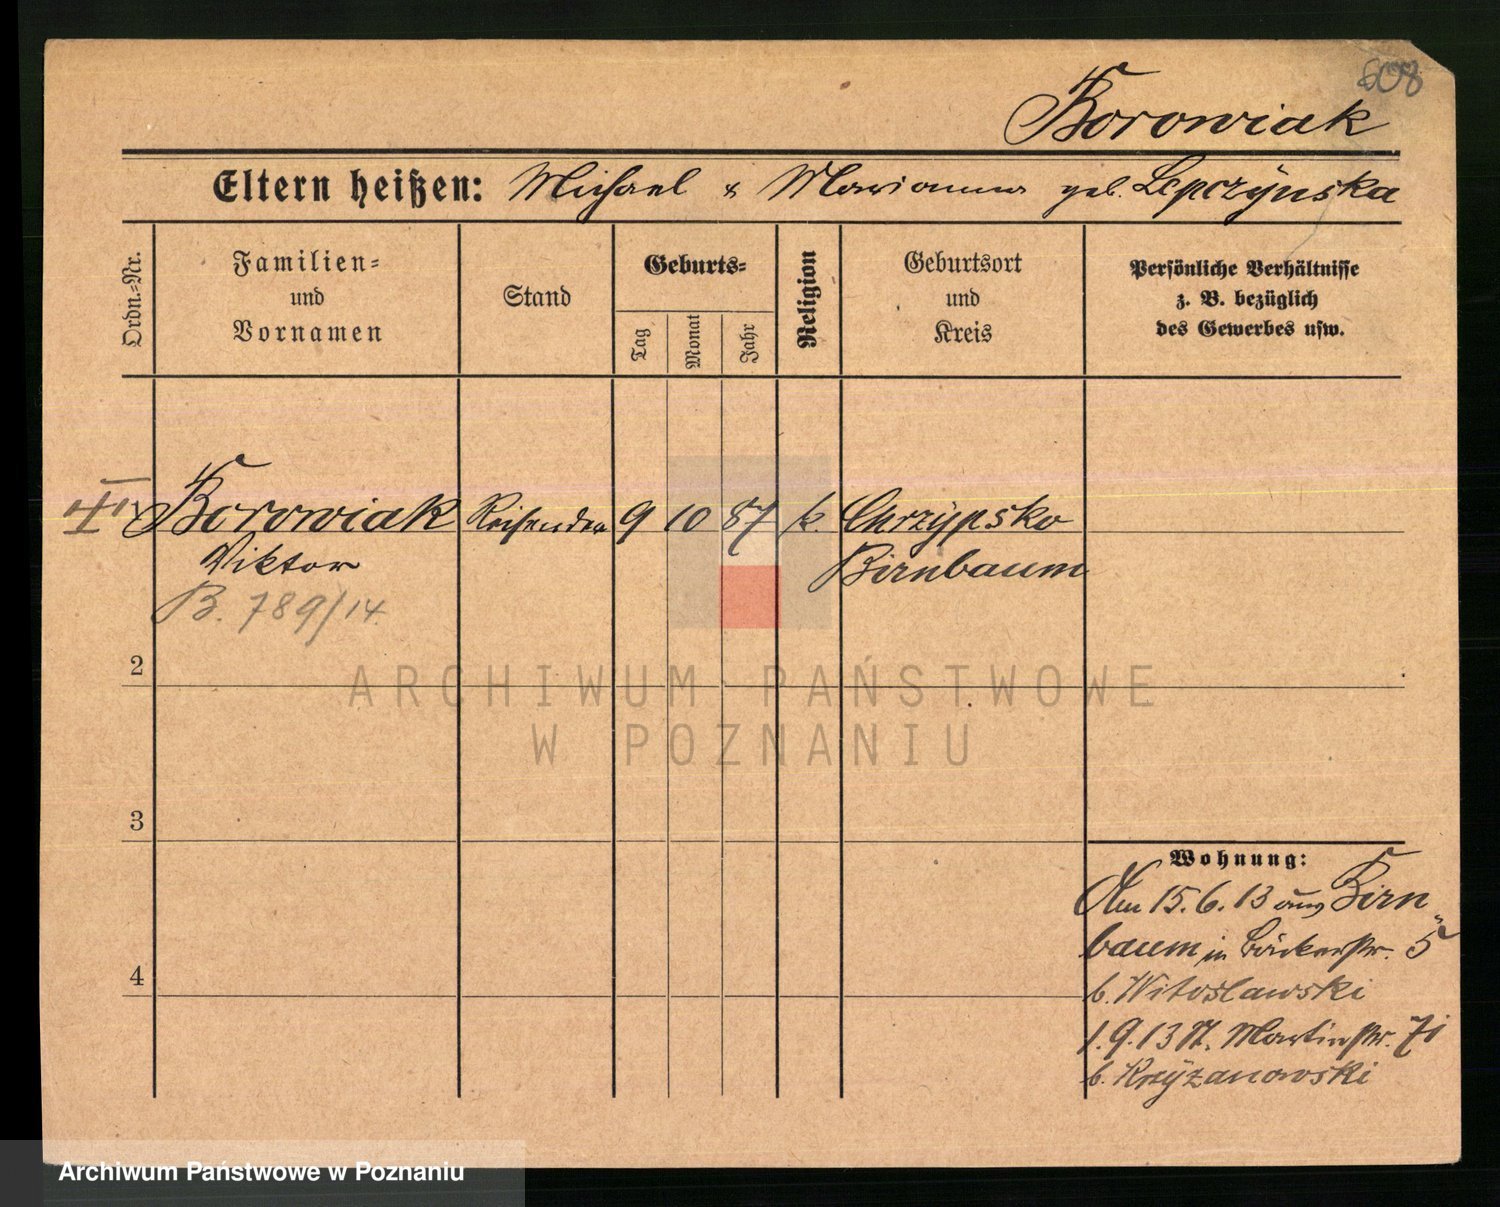 608
Borowiak
Eltern heißen: Michael & Marianna geb. Lepczÿnska
Ordn.-Nr.
Familien- und Vornamen
Stand
Geburts-
Tag
Monat
Jahr
Religion
Geburtsort und Kreis
Persönliche Verhältnisse
z. B. bezüglich
des Gewerbes usw.
Borowiak Reisender 9 10 87 k. Chrzÿpsko
Viktor Birnbaum
B. 789/14.
2
ARCHIWUM PAŃSTWOWE
W POZNANIU
3
Wohnung:
Am 15.6.13 aus Birn
baum in Bäckerstr. 5
4
b. Witoslawski
1.9.13 St. Martinstr. 71
b. Krzÿzanowski
Archiwum Państwowe w Poznaniu